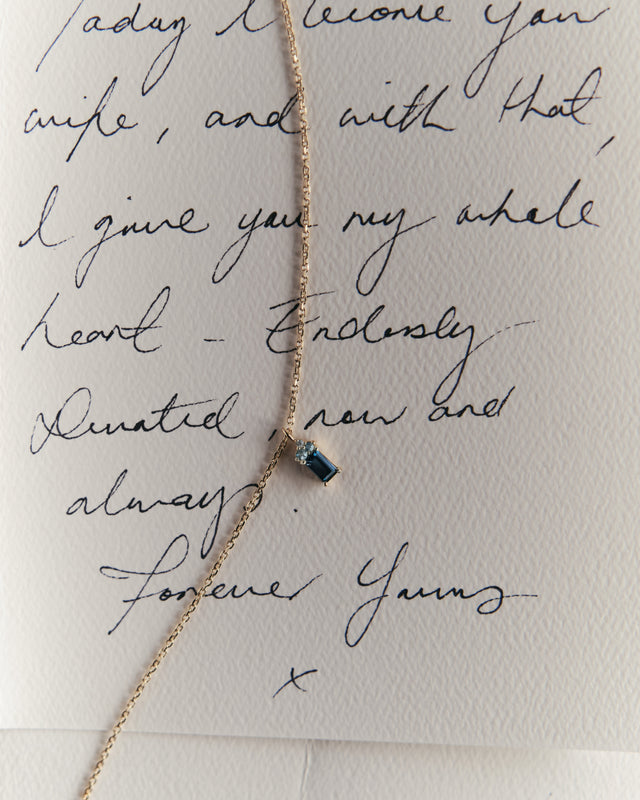 Today I become your
wife, and with that,
I give you my whole
heart - Endlessly
Devoted, now and
always.
Forever Yours
x